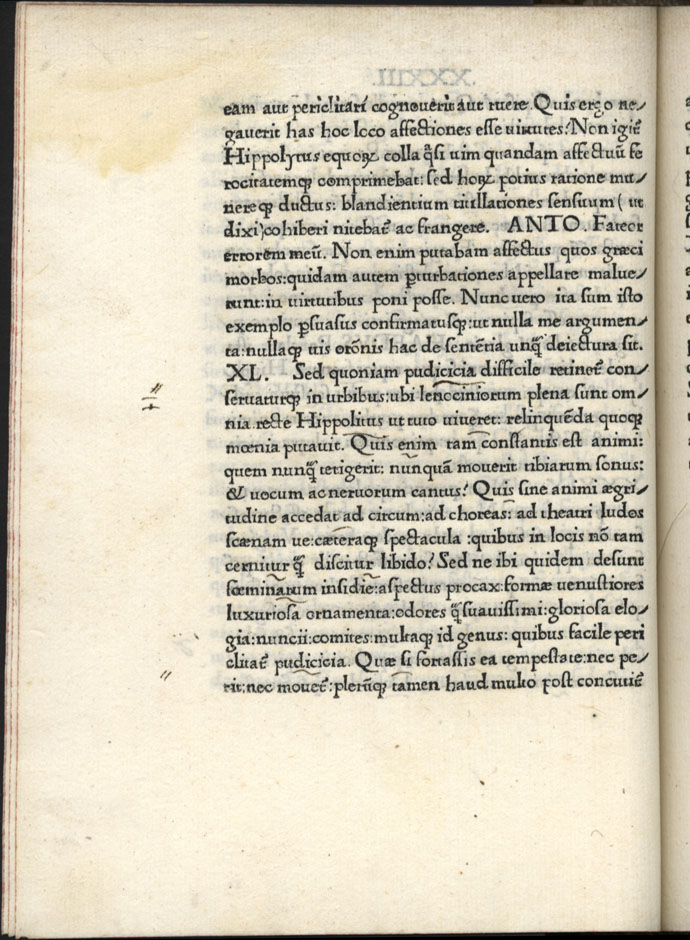 eam aut periclitari cognouerit aut ruere. Quis ergo ne⸗
gauerit has hoc loco affectiones esse uirtutes? Non igiť
Hippolytus equoꝝ colla q̃si uim quandam affectuũ fe
rocitatemqꝫ comprimebat: sed hoꝝ potius ratione mu
nereqꝫ ductus: blandientium titillationes sensuum ( ut
dixi )cohiberi nitebať ac frangere. ANTO. Fateor
errorem meũ. Non enim putabam affectus quos græci
morbos: quidam autem ꝑturbationes appellare malue⸗
runt: in uirtutibus poni posse. Nunc uero ita sum isto
exemplo ꝑsuasus confirmatusqꝫ: ut nulla me argumen⸗
ta: nullaqꝫ uis orõnis hac de sentẽtia unq̃ deiectura sit.
XL. Sed quoniam pudicicia difficile retinoť con⸗
seruaturqꝫ in urbibus: ubi lenociniorum plena sunt om⸗
nia. recte Hippolitus ut tuto uiueret: relinquẽda quoqꝫ
mœnia putauit. Quis enim tam constantis est animi:
quem nunq̃ tetigerit: nunquã mouerit tibiarum sonus:
& uocum ac neruorum cantus? Quis sine animi ægri⸗
tudine accedat ad circum: ad choreas: ad theatri ludos
scænam ue: cæteraqꝫ spectacula : quibus in locis nõ tam
cernitur q̃ discitur libido? Sed ne ibi quidem desunt
fœminarum insidie: aspectus procax: formæ uenustiores
luxuriosa ornamenta: odores q̃suauissimi: gloriosa elo⸗
gia: nuncii: comites: multaqꝫ id genus: quibus facile peri
clitať pudicicia. Quæ si fortassis ea tempestate: nec pe⸗
rit: nec moueť: plerũqꝫ tamen haud multo post concutiť